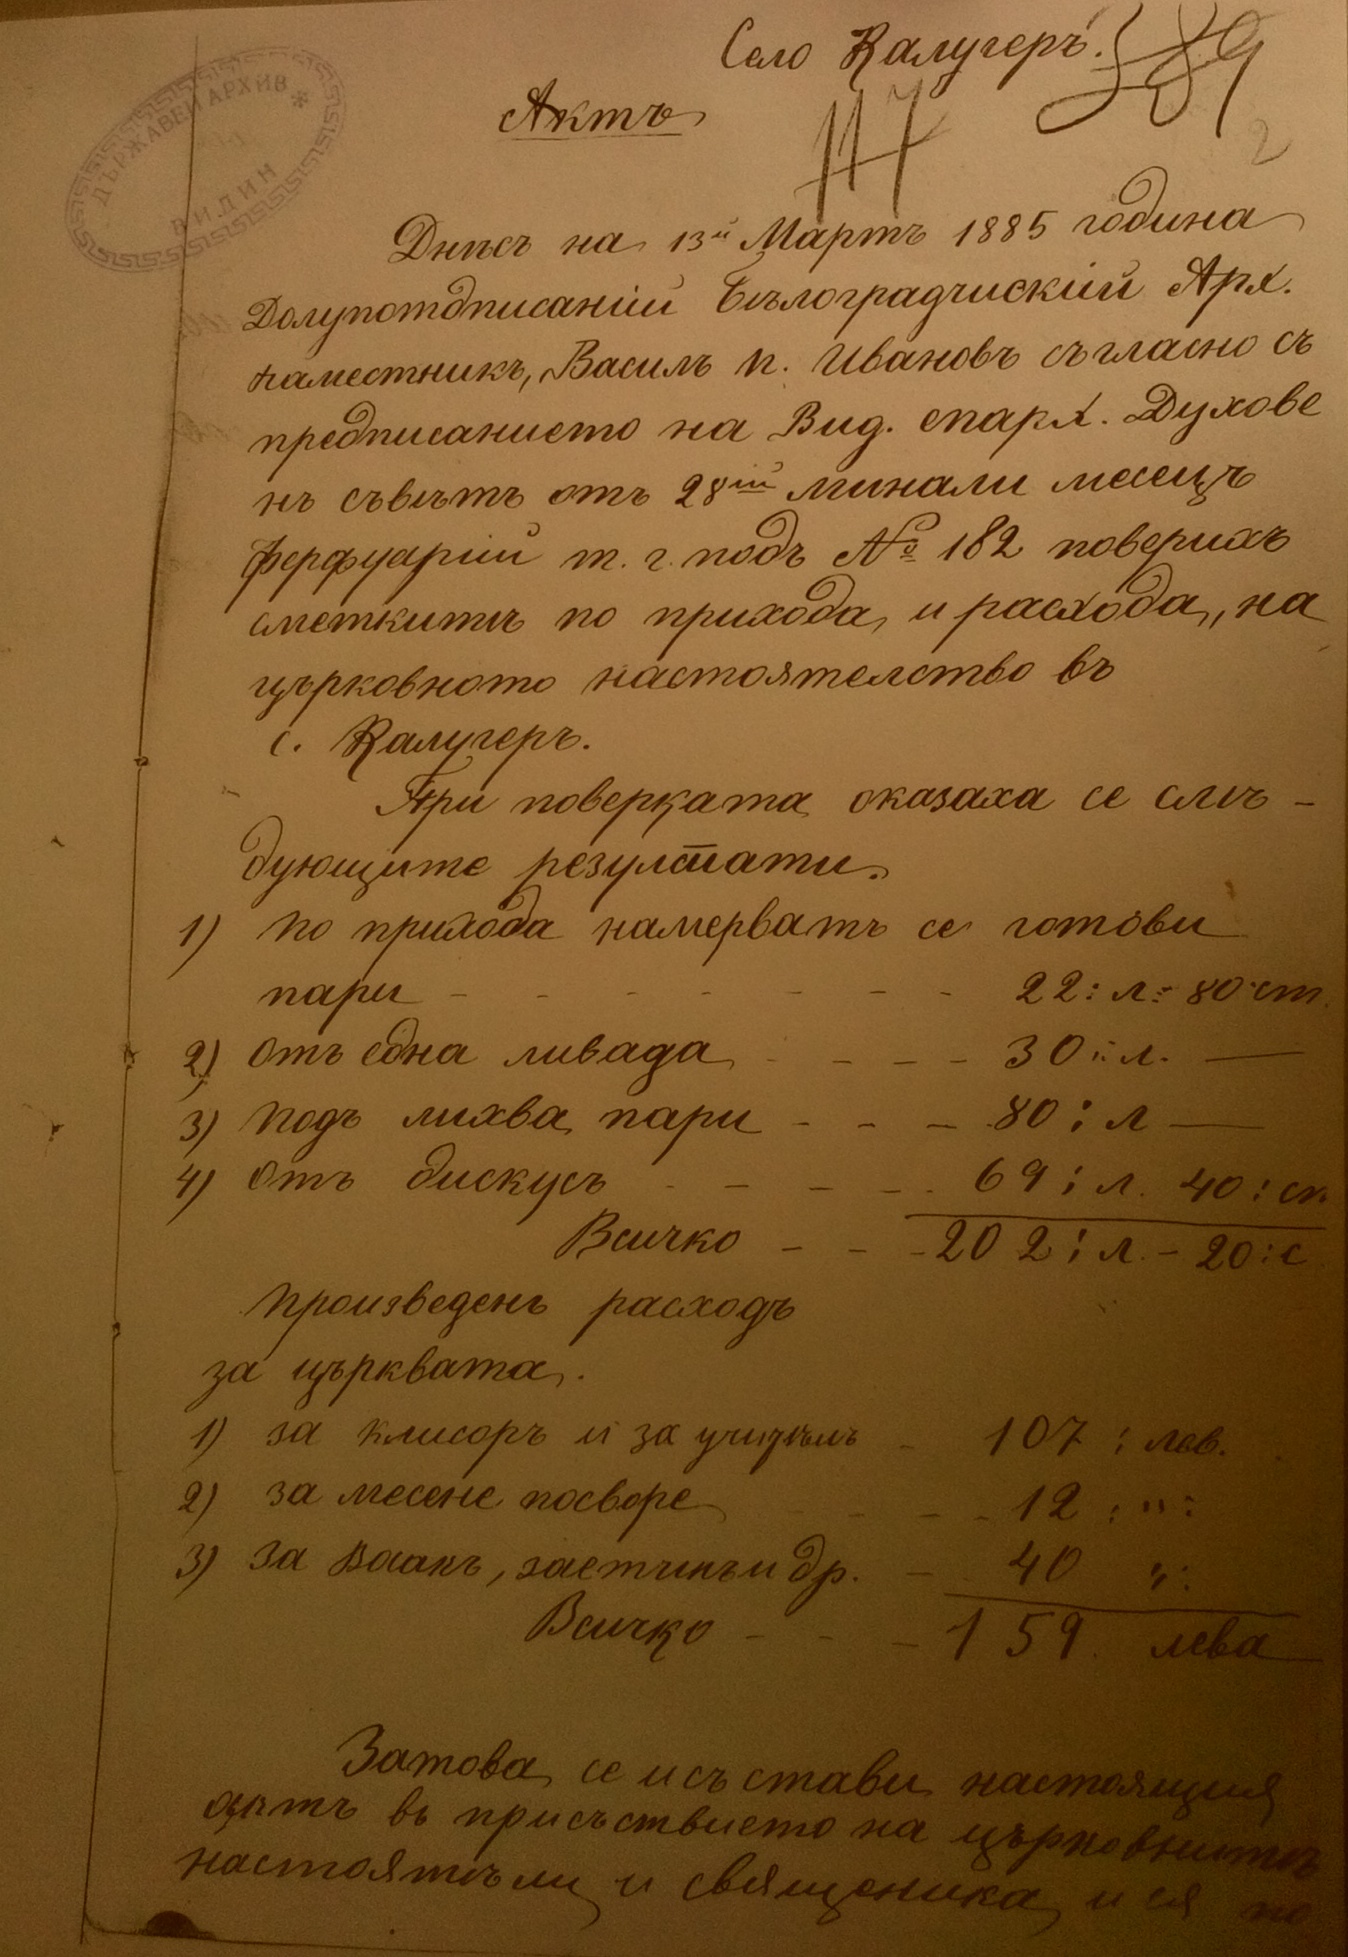 Село Калугеръ.
389
Актъ
117
2
ДЪРЖАВЕН АРХИВ *
ВИДИН
Днѣсъ на 13й Мартъ 1885 година
Долуподписаній Бѣлоградчискій Арх.
наместникъ, Василъ п. Ивановъ съгласно съ
предписанието на Вид. епарх. Духове
нъ съвѣтъ отъ 28ій минали месецъ
ферфуарій т. г. подъ № 182 поверихъ
сметкитѣ по прихода и расхода, на
църковното настоятелство въ
с. Калугеръ.
При поверката оказаха се слѣ-
дующите резултати.
1) по прихода намерватъ се готови
пари - - - - - - - - 22: л: 80 ст.
2) Отъ една ливада - - - - 30: л. —
3) Подъ лихва пари - - - 80: л —
4) Отъ дискусъ - - - - - 69: л. 40: ст.
Всичко - - - 202: л. - 20: с
Произведенъ расходъ
за църквата.
1) за клисоръ и за учителъ - 107: лев.
2) за месене посворе - - - - 12: ":
3) За и др. - 40 ":
Всичко - - - 159. лева
Затова се и състави настоящия
актъ въ присъствието на църковнитѣ
настоятѣли и священика и ся по